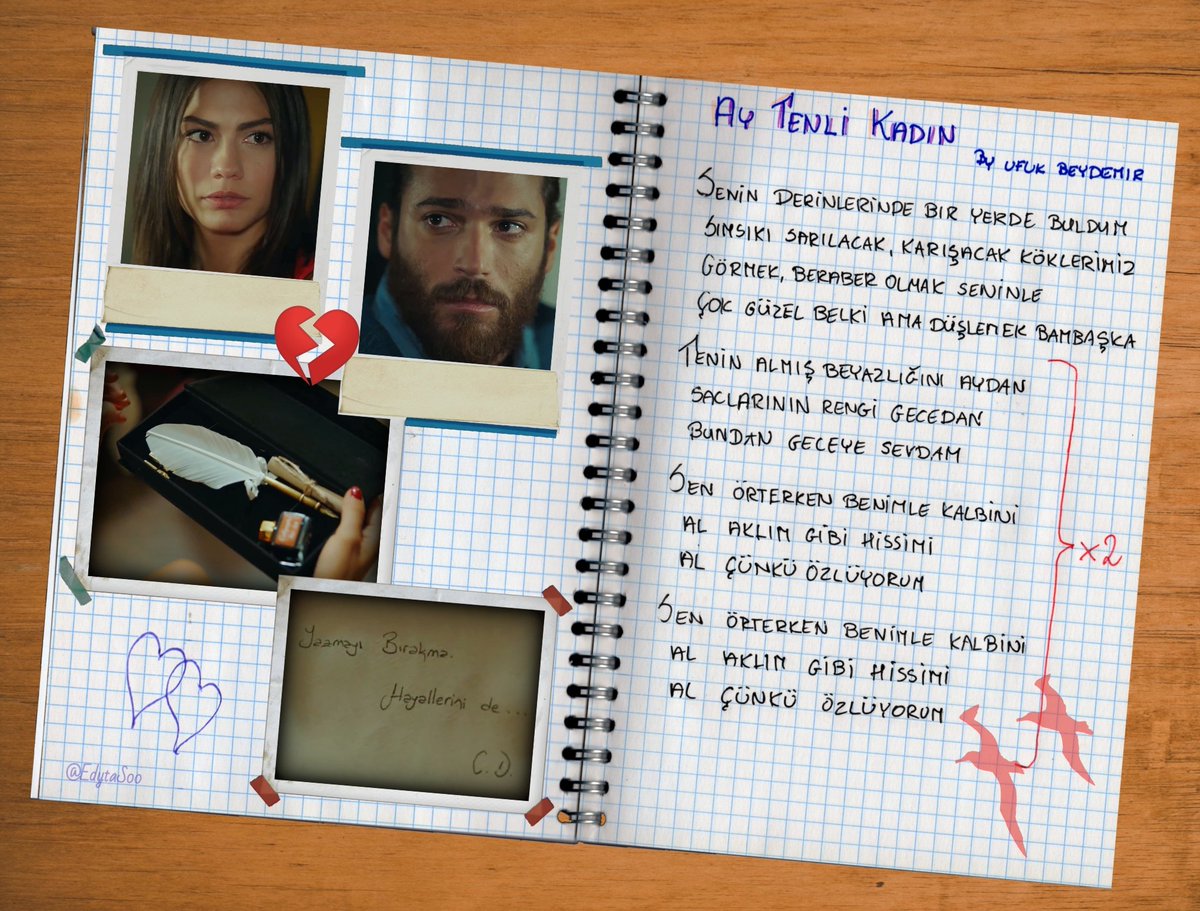 Yazmayı Bırakma.
Hayallerini de...
C.D.
@EdytaSoo
Ay Tenli Kadın
By Ufuk Beydemir
Senin derinlerinde bir yerde buldum
Sımsıkı sarılacak, karışacak köklerimiz
Görmek, beraber olmak seninle
Çok güzel belki ama düşlemek bambaşka
Tenin almış beyazlığını aydan
Saclarının rengi gecedan
Bundan geceye sevdam
Sen örterken benimle kalbini
Al aklım gibi hissimi
Al çünkü özlüyorum
Sen örterken benimle kalbini
Al aklım gibi hissimi
Al çünkü özlüyorum
x2